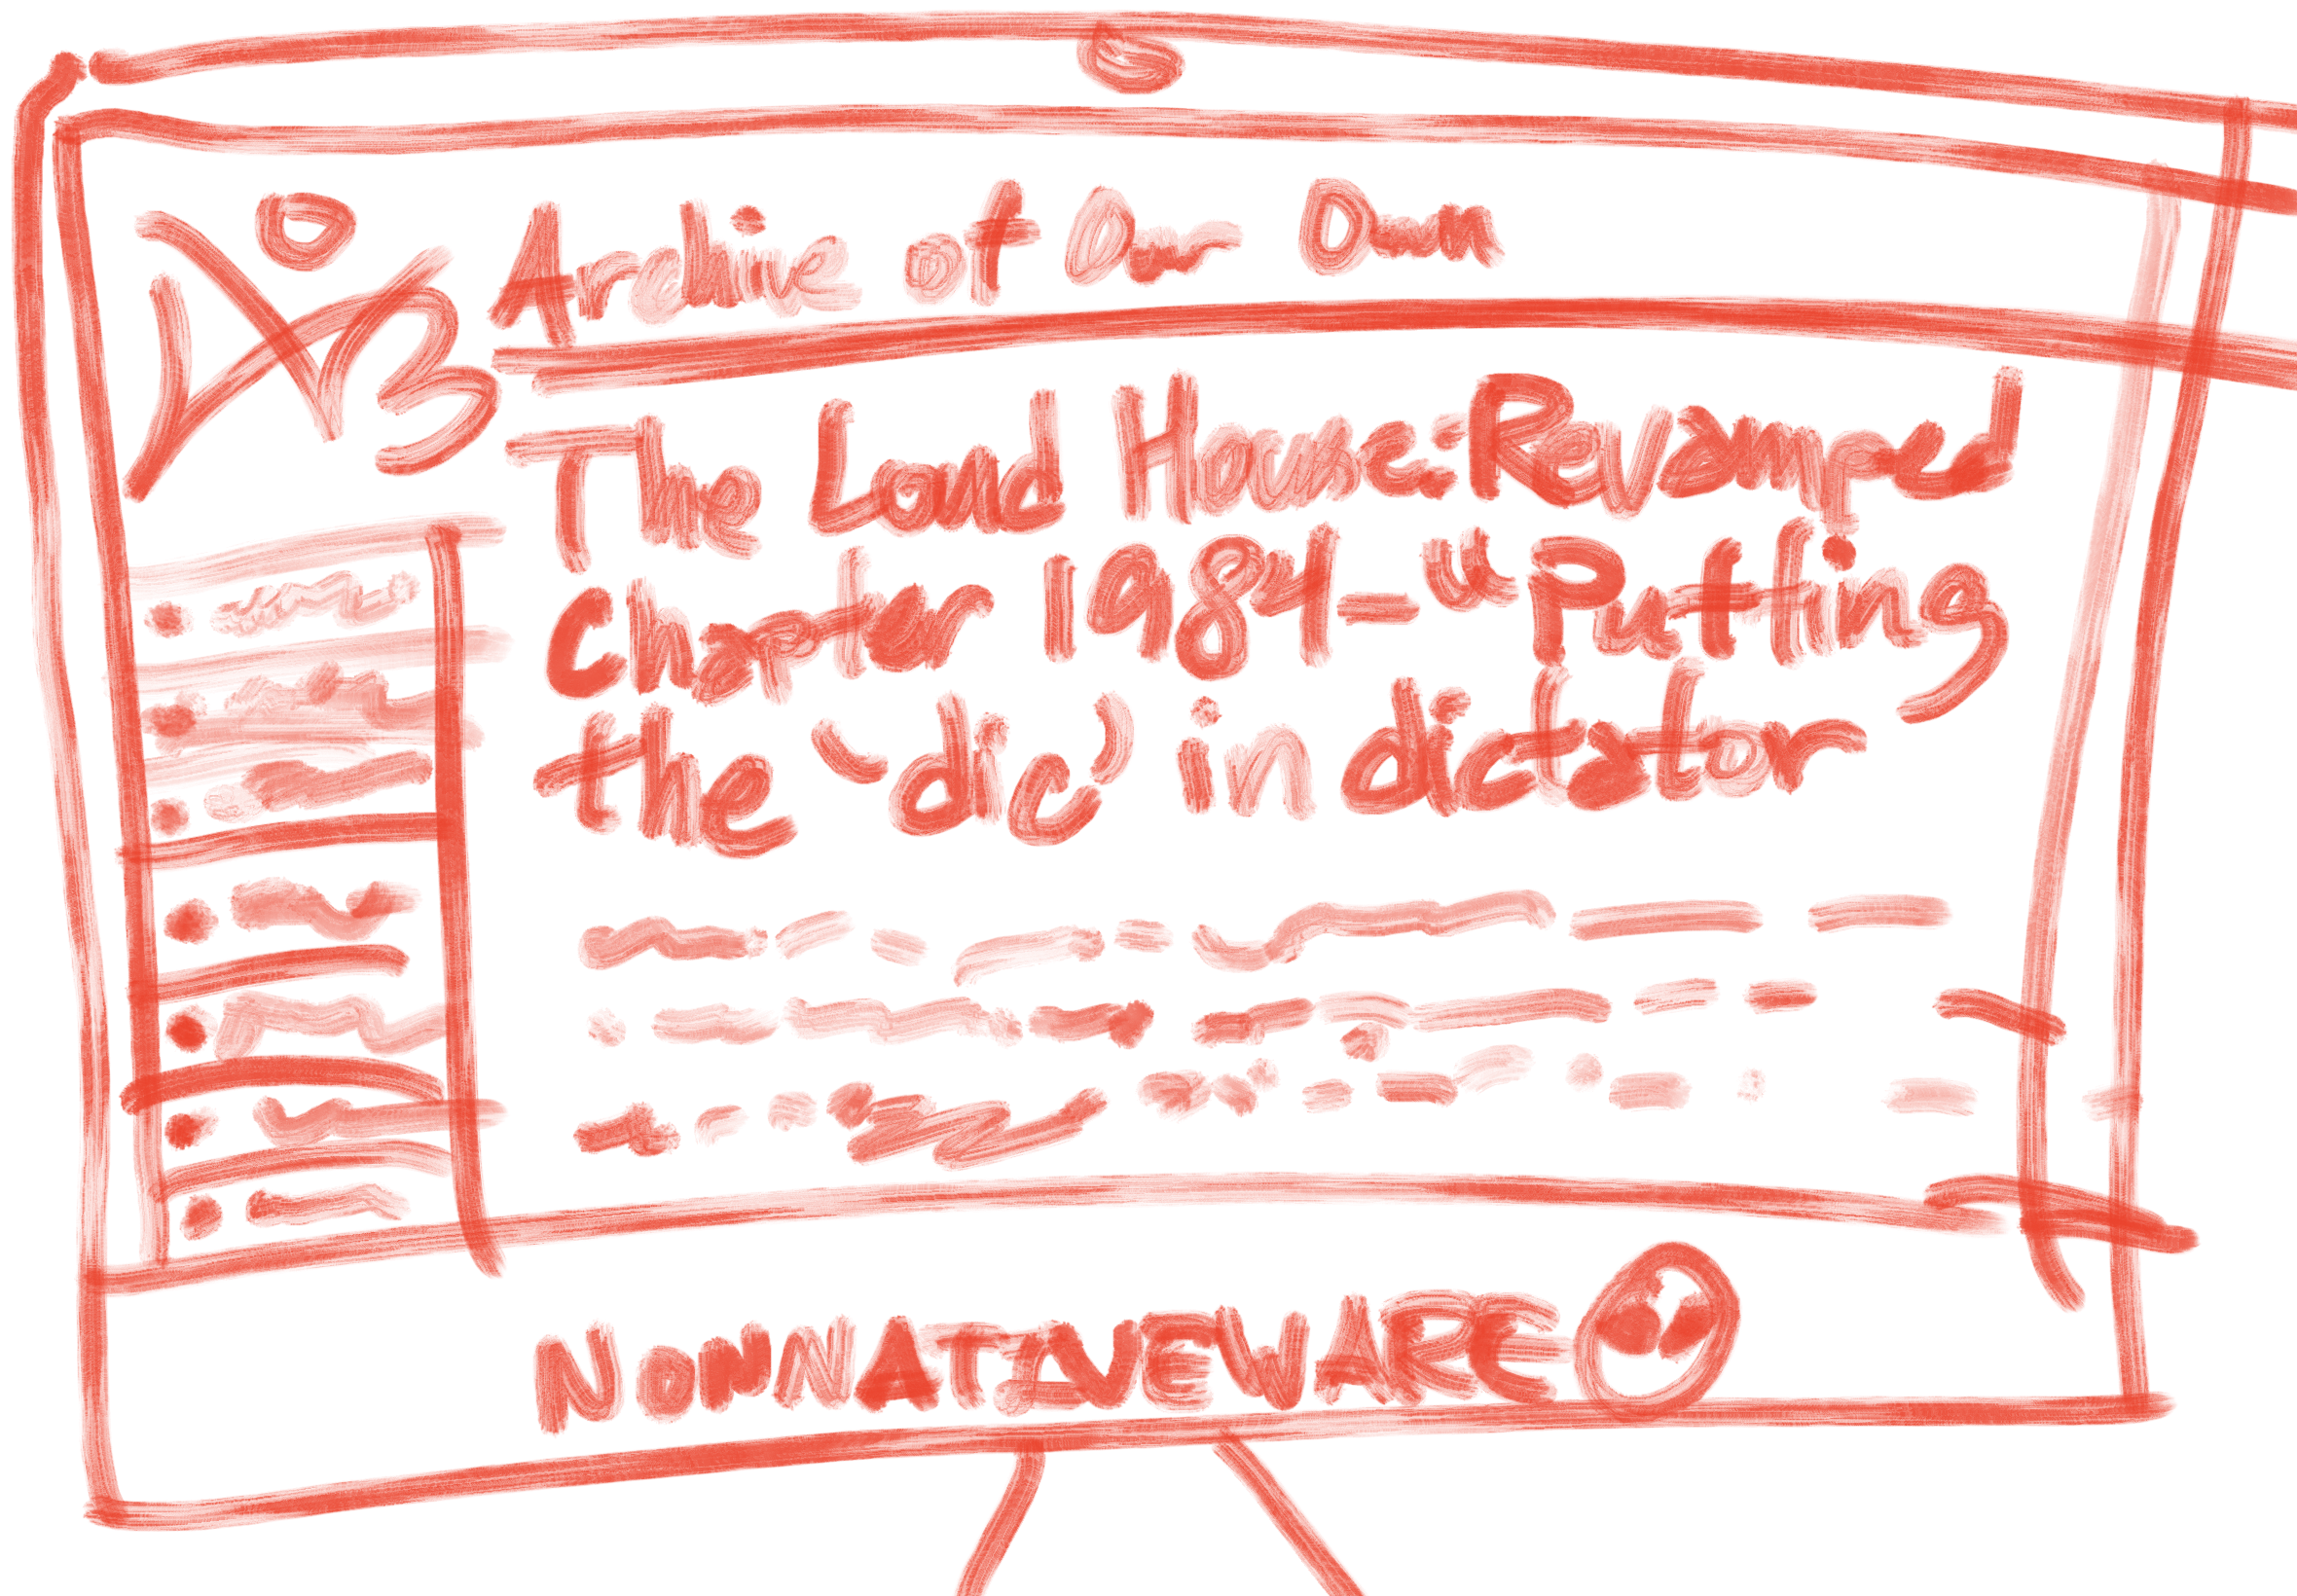 Archive of Our Own
The Loud House: Revamped
Chapter 1984 - "Putting
the 'dic' in dictator
NONNATIVEWARE